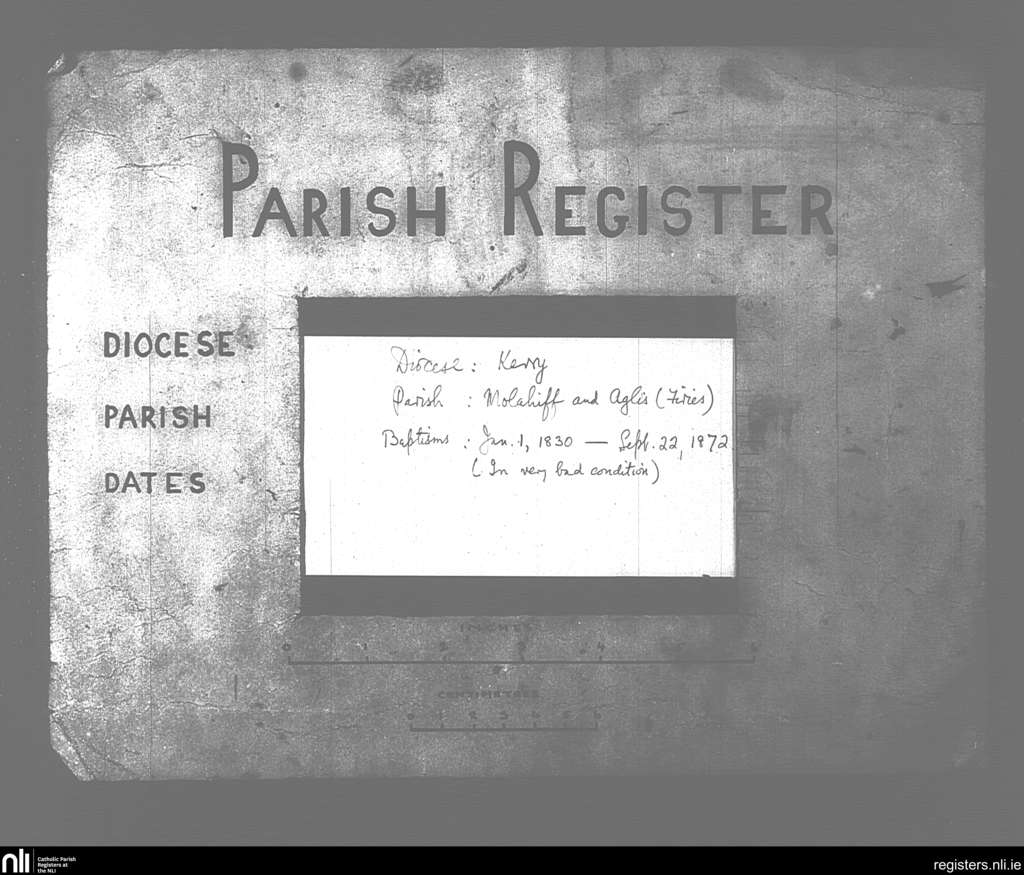 PARISH REGISTER
DIOCESE
PARISH
DATES
Diocese : Kerry
Parish : Molahiff and Aglis (Firies)
Baptisms : Jan. 1, 1830 — Sept. 22, 1872
(In very bad condition)
INCHES
0 1 2 3 4 5 6
CENTIMETRES
0 1 2 3 4 5 6
nli
Catholic Parish
Registers at
the NLI
registers.nli.ie